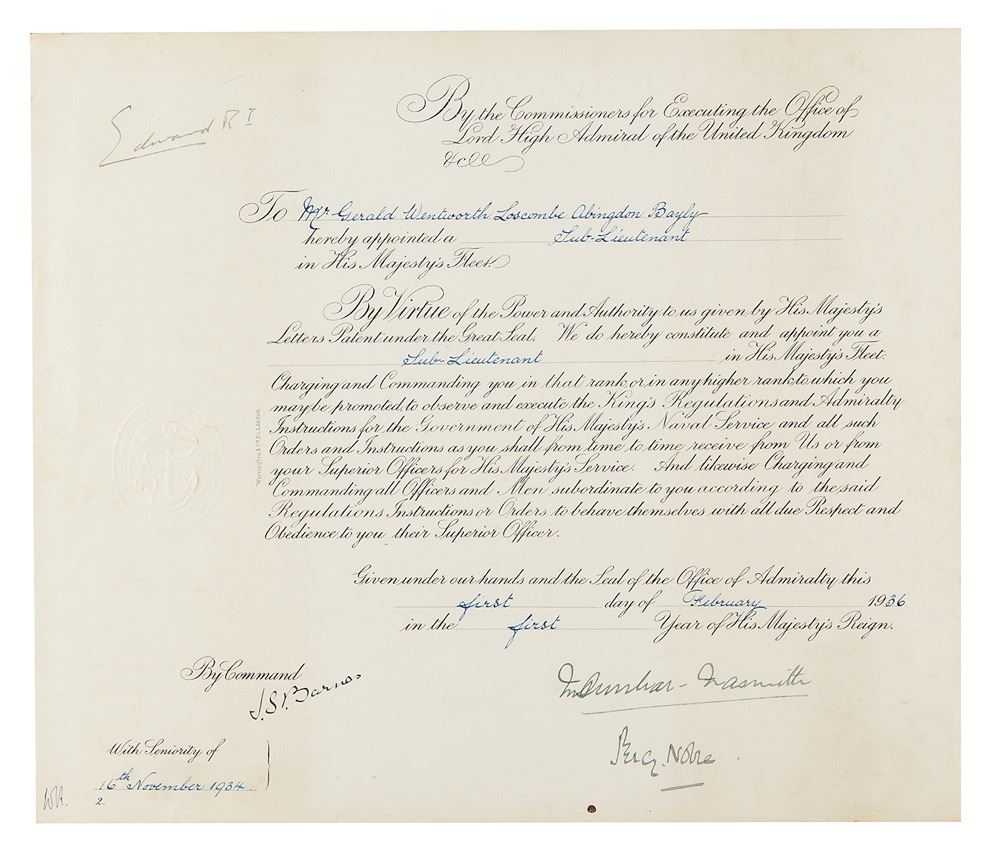 Edward R I
By the Commissioners for Executing the Office of
Lord High Admiral of the United Kingdom
&c
To Mr. Gerald Wentworth Loscombe Abingdon Bayly
hereby appointed a Sub-Lieutenant
in His Majesty's Fleet.
By Virtue of the Power and Authority to us given by His Majesty's
Letters Patent under the Great Seal, We do hereby constitute and appoint you a
Sub-Lieutenant in His Majesty's Fleet:
Charging and Commanding you in that rank, or in any higher rank to which you
may be promoted, to observe and execute the King's Regulations and Admiralty
Instructions for the Government of His Majesty's Naval Service and all such
Orders and Instructions as you shall from time to time receive from Us or from
your Superior Officers for His Majesty's Service. And likewise Charging and
Commanding all Officers and Men subordinate to you according to the said
Regulations Instructions or Orders to behave themselves with all due Respect and
Obedience to you their Superior Officer.
Given under our hands and the Seal of the Office of Admiralty this
first day of February 1936
in the first Year of His Majesty's Reign.
By Command
J.S. Barnes
M Dunbar-Nasmith
Percy Noble
With Seniority of
16th November 1934
2.